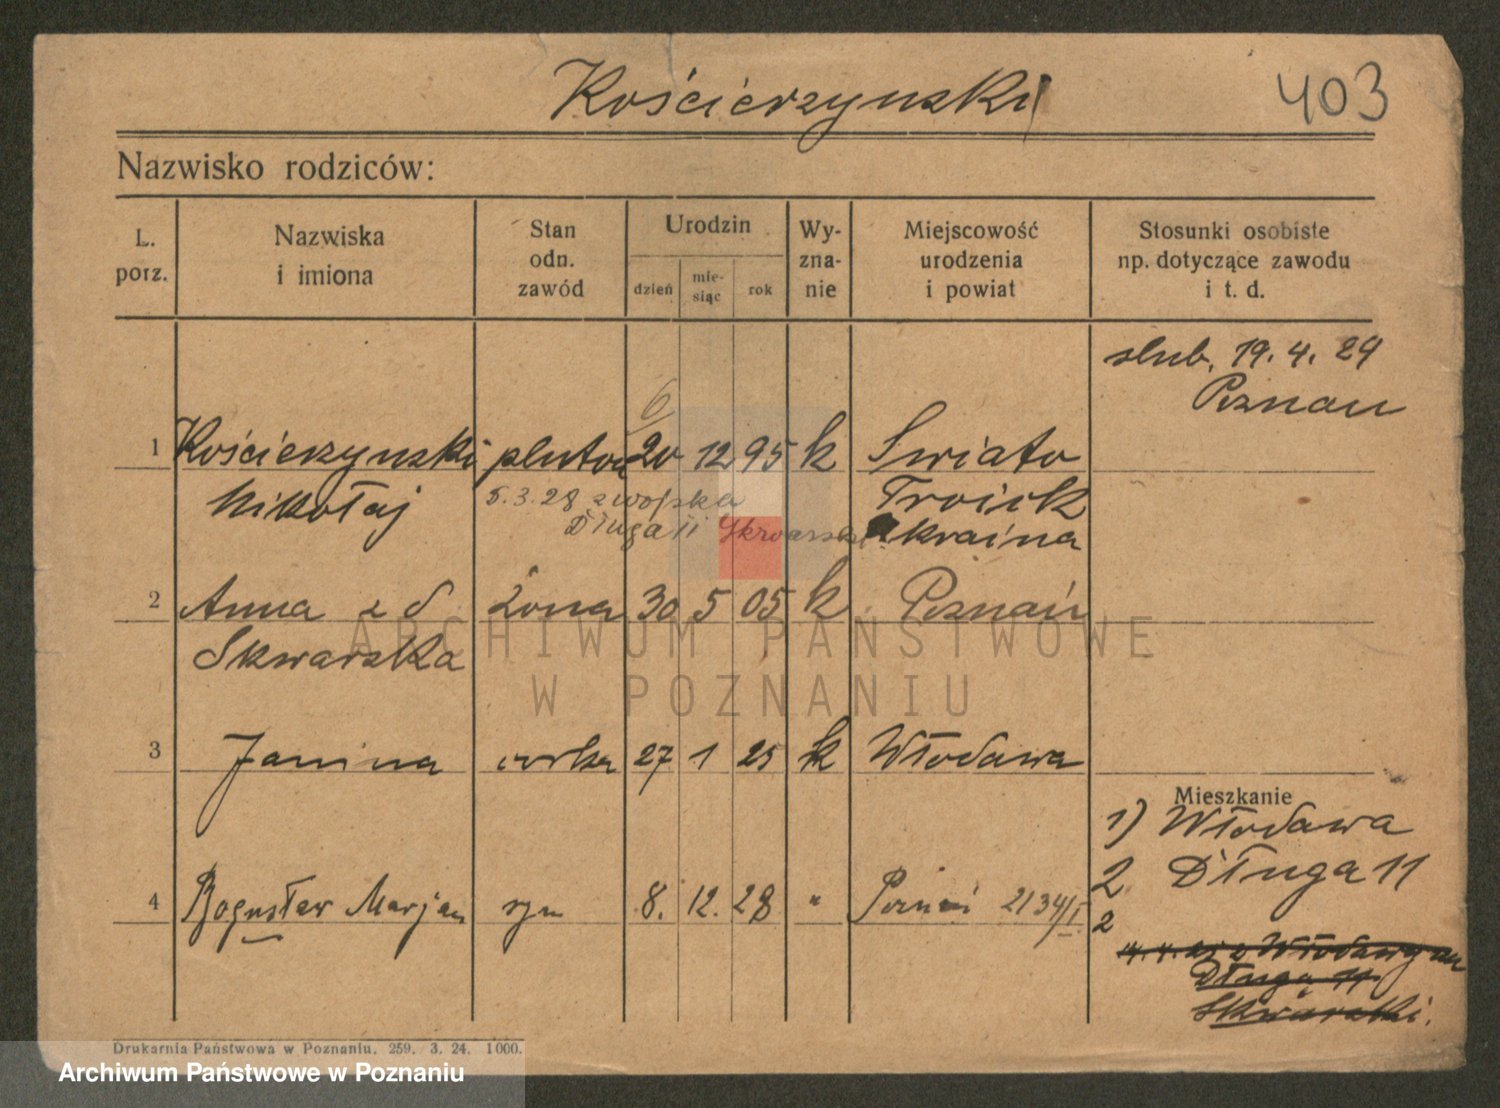 Kościerzynski
403
Nazwisko rodziców:
L. porz.
Nazwiska i imiona
Stan odn. zawód
Urodzin
dzień
mie-siąc
rok
Wy-zna-nie
Miejscowość urodzenia i powiat
Stosunki osobiste np. dotyczące zawodu i t. d.
slub. 19. 4. 24
Poznan
6
1 Kościerzynski pluton 20 12 95 k Swiato
Mikołaj
5.3.28 z wojska
Troick
Długa 11 Skwarski
Ukraina
2 Anna z d. żona 30 5 05 k Poznań
Skwarska
3 Janina corka 27 1 25 k Włodawa
Mieszkanie
1) Włodawa
2. Długa 11
4 Bogusław Marjan syn 8. 12. 28 " Poznań 2134/I
2
Włodawy
Długa 11
Skwarski.
Drukarnia Państwowa w Poznaniu. 259. 3. 24. 1000.
ARCHIWUM PAŃSTWOWE
W POZNANIU
Archiwum Państwowe w Poznaniu